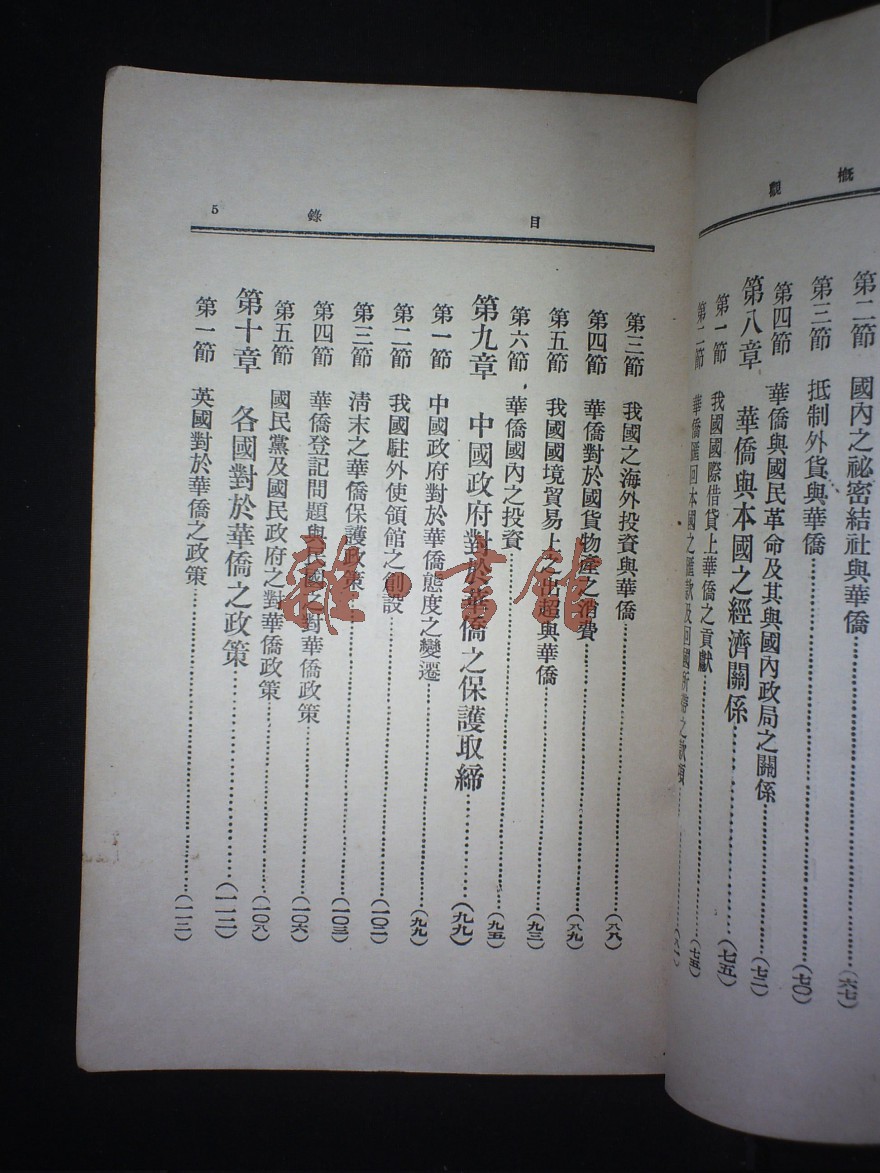 概觀
第二節 國內之祕密結社與華僑……(六七)
第三節 抵制外貨與華僑……(七〇)
第四節 華僑與國民革命及其與國內政局之關係……(七二)
第八章 華僑與本國之經濟關係……(七五)
第一節 我國國際借貸上華僑之貢獻……(七五)
第二節 華僑匯回本國之匯款及回國所帶之款項……
目錄 5
第三節 我國之海外投資與華僑……(八八)
第四節 華僑對於國貨物產之消費……(八九)
第五節 我國國境貿易上之出超與華僑……(九三)
第六節 華僑國內之投資……(九五)
第九章 中國政府對於華僑之保護取締……(九九)
第一節 中國政府對於華僑態度之變遷……(九九)
第二節 我國駐外使領館之創設……(一〇二)
第三節 清末之華僑保護政策……(一〇三)
第四節 華僑登記問題與民國之對華僑政策……(一〇六)
第五節 國民黨及國民政府之對華僑政策……(一〇八)
第十章 各國對於華僑之政策……(一一三)
第一節 英國對於華僑之政策……(一一三)
雜·書館